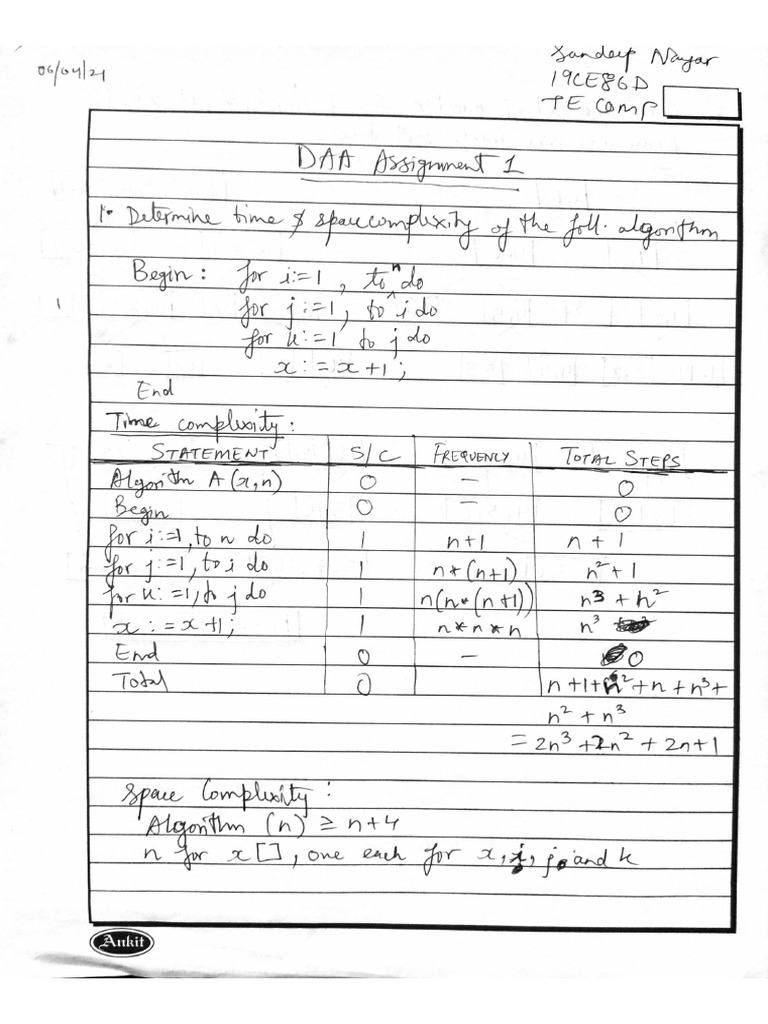 06/04/21
Sandeep Nayar
19CE86D
TE Comp
DAA Assignment 1
1. Determine time & space complexity of the foll. algorithm
Begin : for i:=1 , to n do
for j:=1, to i do
for k:=1 to j do
x:=x+1;
End
Time complexity:
STATEMENT S/C FREQUENCY TOTAL STEPS
Algorithm A(x,n) 0 - 0
Begin 0 - 0
for i:=1, to n do 1 n+1 n+1
for j:=1, to i do 1 n*(n+1) n²+1
for k:=1, to j do 1 n(n*(n+1)) n³+n²
x:=x+1; 1 n*n*n n³
End 0 - 0
Total 0 n+1+n²+n+n³+
n²+n³
=2n³+2n²+2n+1
Space Complexity:
Algorithm (n) ≥ n+4
n for x[], one each for x, i, j, and k
Ankit